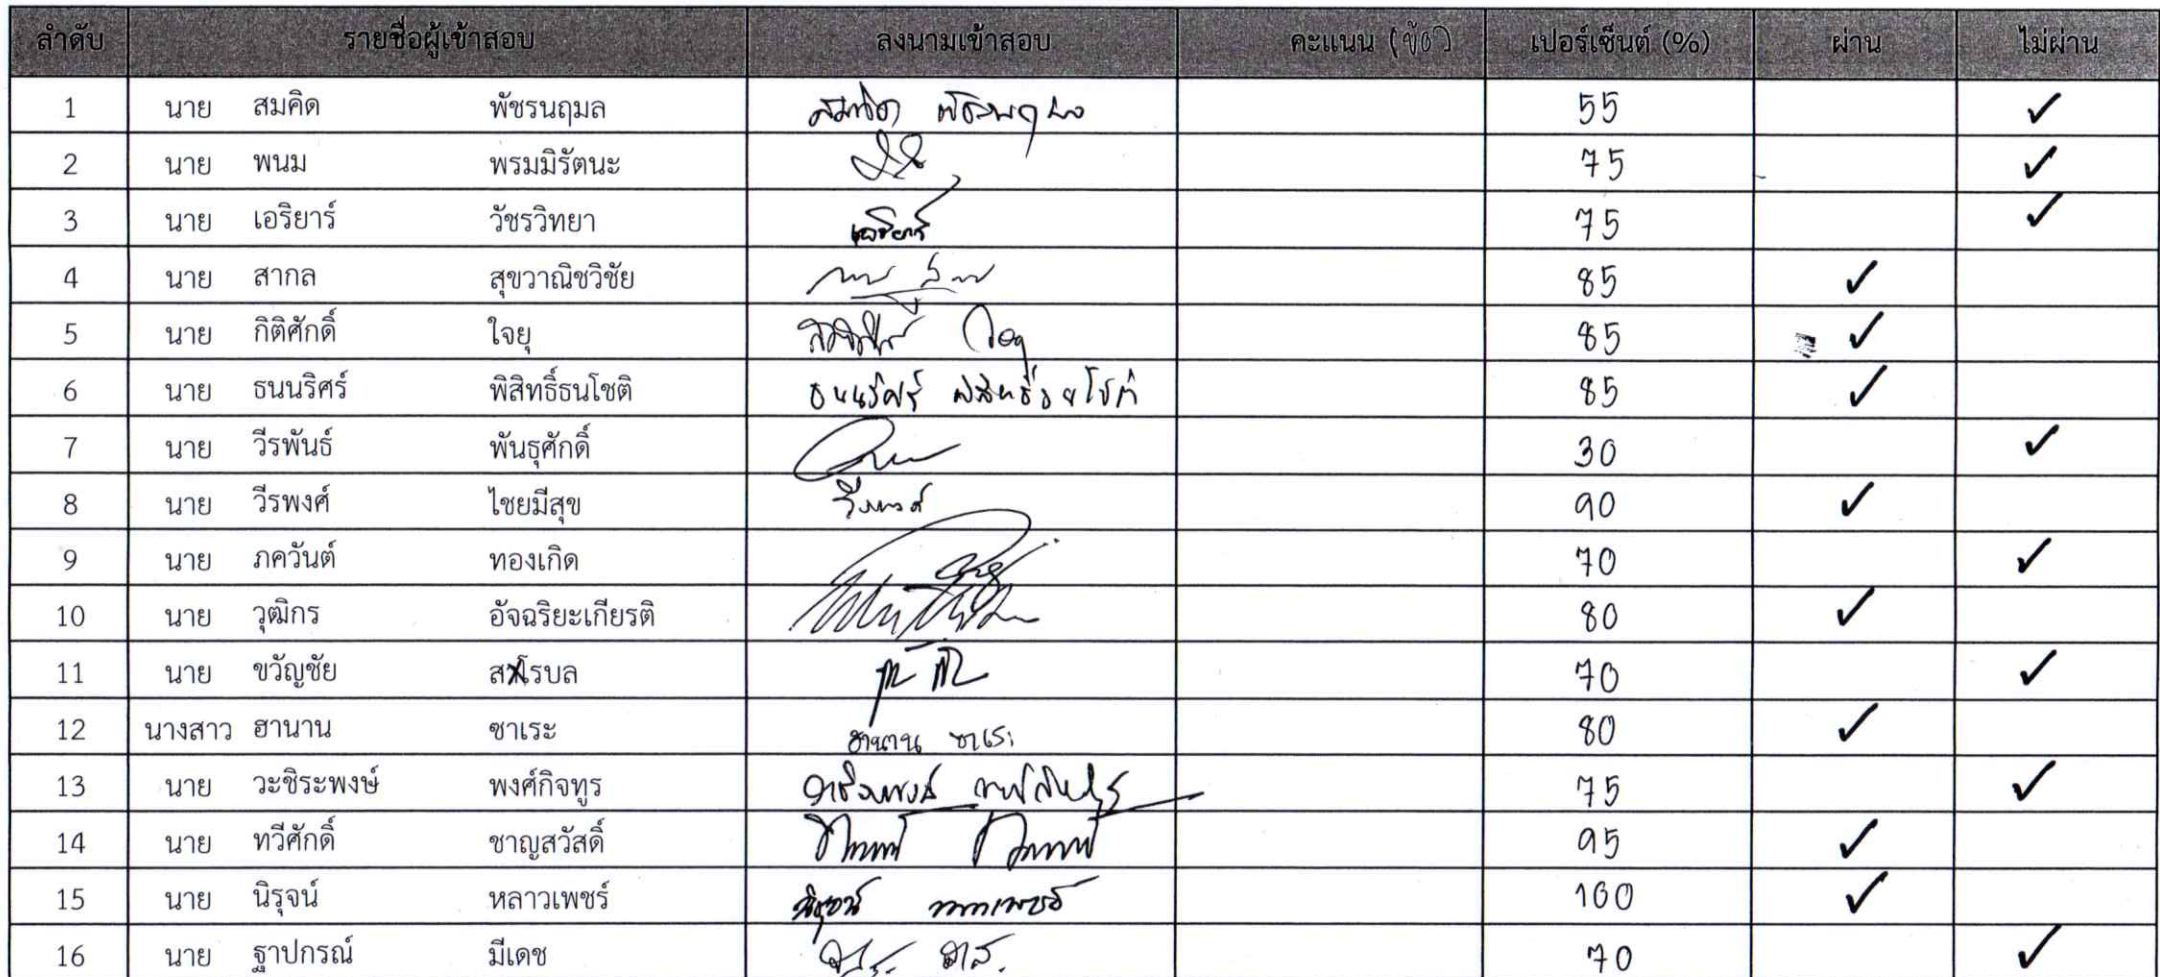 ลำดับ รายชื่อผู้เข้าสอบ ลงนามเข้าสอบ คะแนน (ข้อ) เปอร์เซ็นต์ (%) ผ่าน ไม่ผ่าน
1 นาย สมคิด พัชรนฤมล 55 ✓
2 นาย พนม พรมมิรัตนะ 75 ✓
3 นาย เอริยาร์ วัชรวิทยา เอริยาร์ 75 ✓
4 นาย สากล สุขวาณิชวิชัย 85 ✓
5 นาย กิติศักดิ์ ใจยุ 85 ✓
6 นาย ธนนริศร์ พิสิทธิ์ธนโชติ ธนนริศร์ พิสิทธิ์ธนโชติ 85 ✓
7 นาย วีรพันธ์ พันธุศักดิ์ 30 ✓
8 นาย วีรพงศ์ ไชยมีสุข วีรพงศ์ 90 ✓
9 นาย ภควันต์ ทองเกิด 70 ✓
10 นาย วุฒิกร อัจฉริยะเกียรติ 80 ✓
11 นาย ขวัญชัย สโรบล 70 ✓
12 นางสาว ฮานาน ซาเระ ฮานาน ซาเระ 80 ✓
13 นาย วะชิระพงษ์ พงศ์กิจทูร 75 ✓
14 นาย ทวีศักดิ์ ชาญสวัสดิ์ 95 ✓
15 นาย นิรุจน์ หลาวเพชร์ นิรุจน์ หลาวเพชร์ 100 ✓
16 นาย ฐาปกรณ์ มีเดช 70 ✓